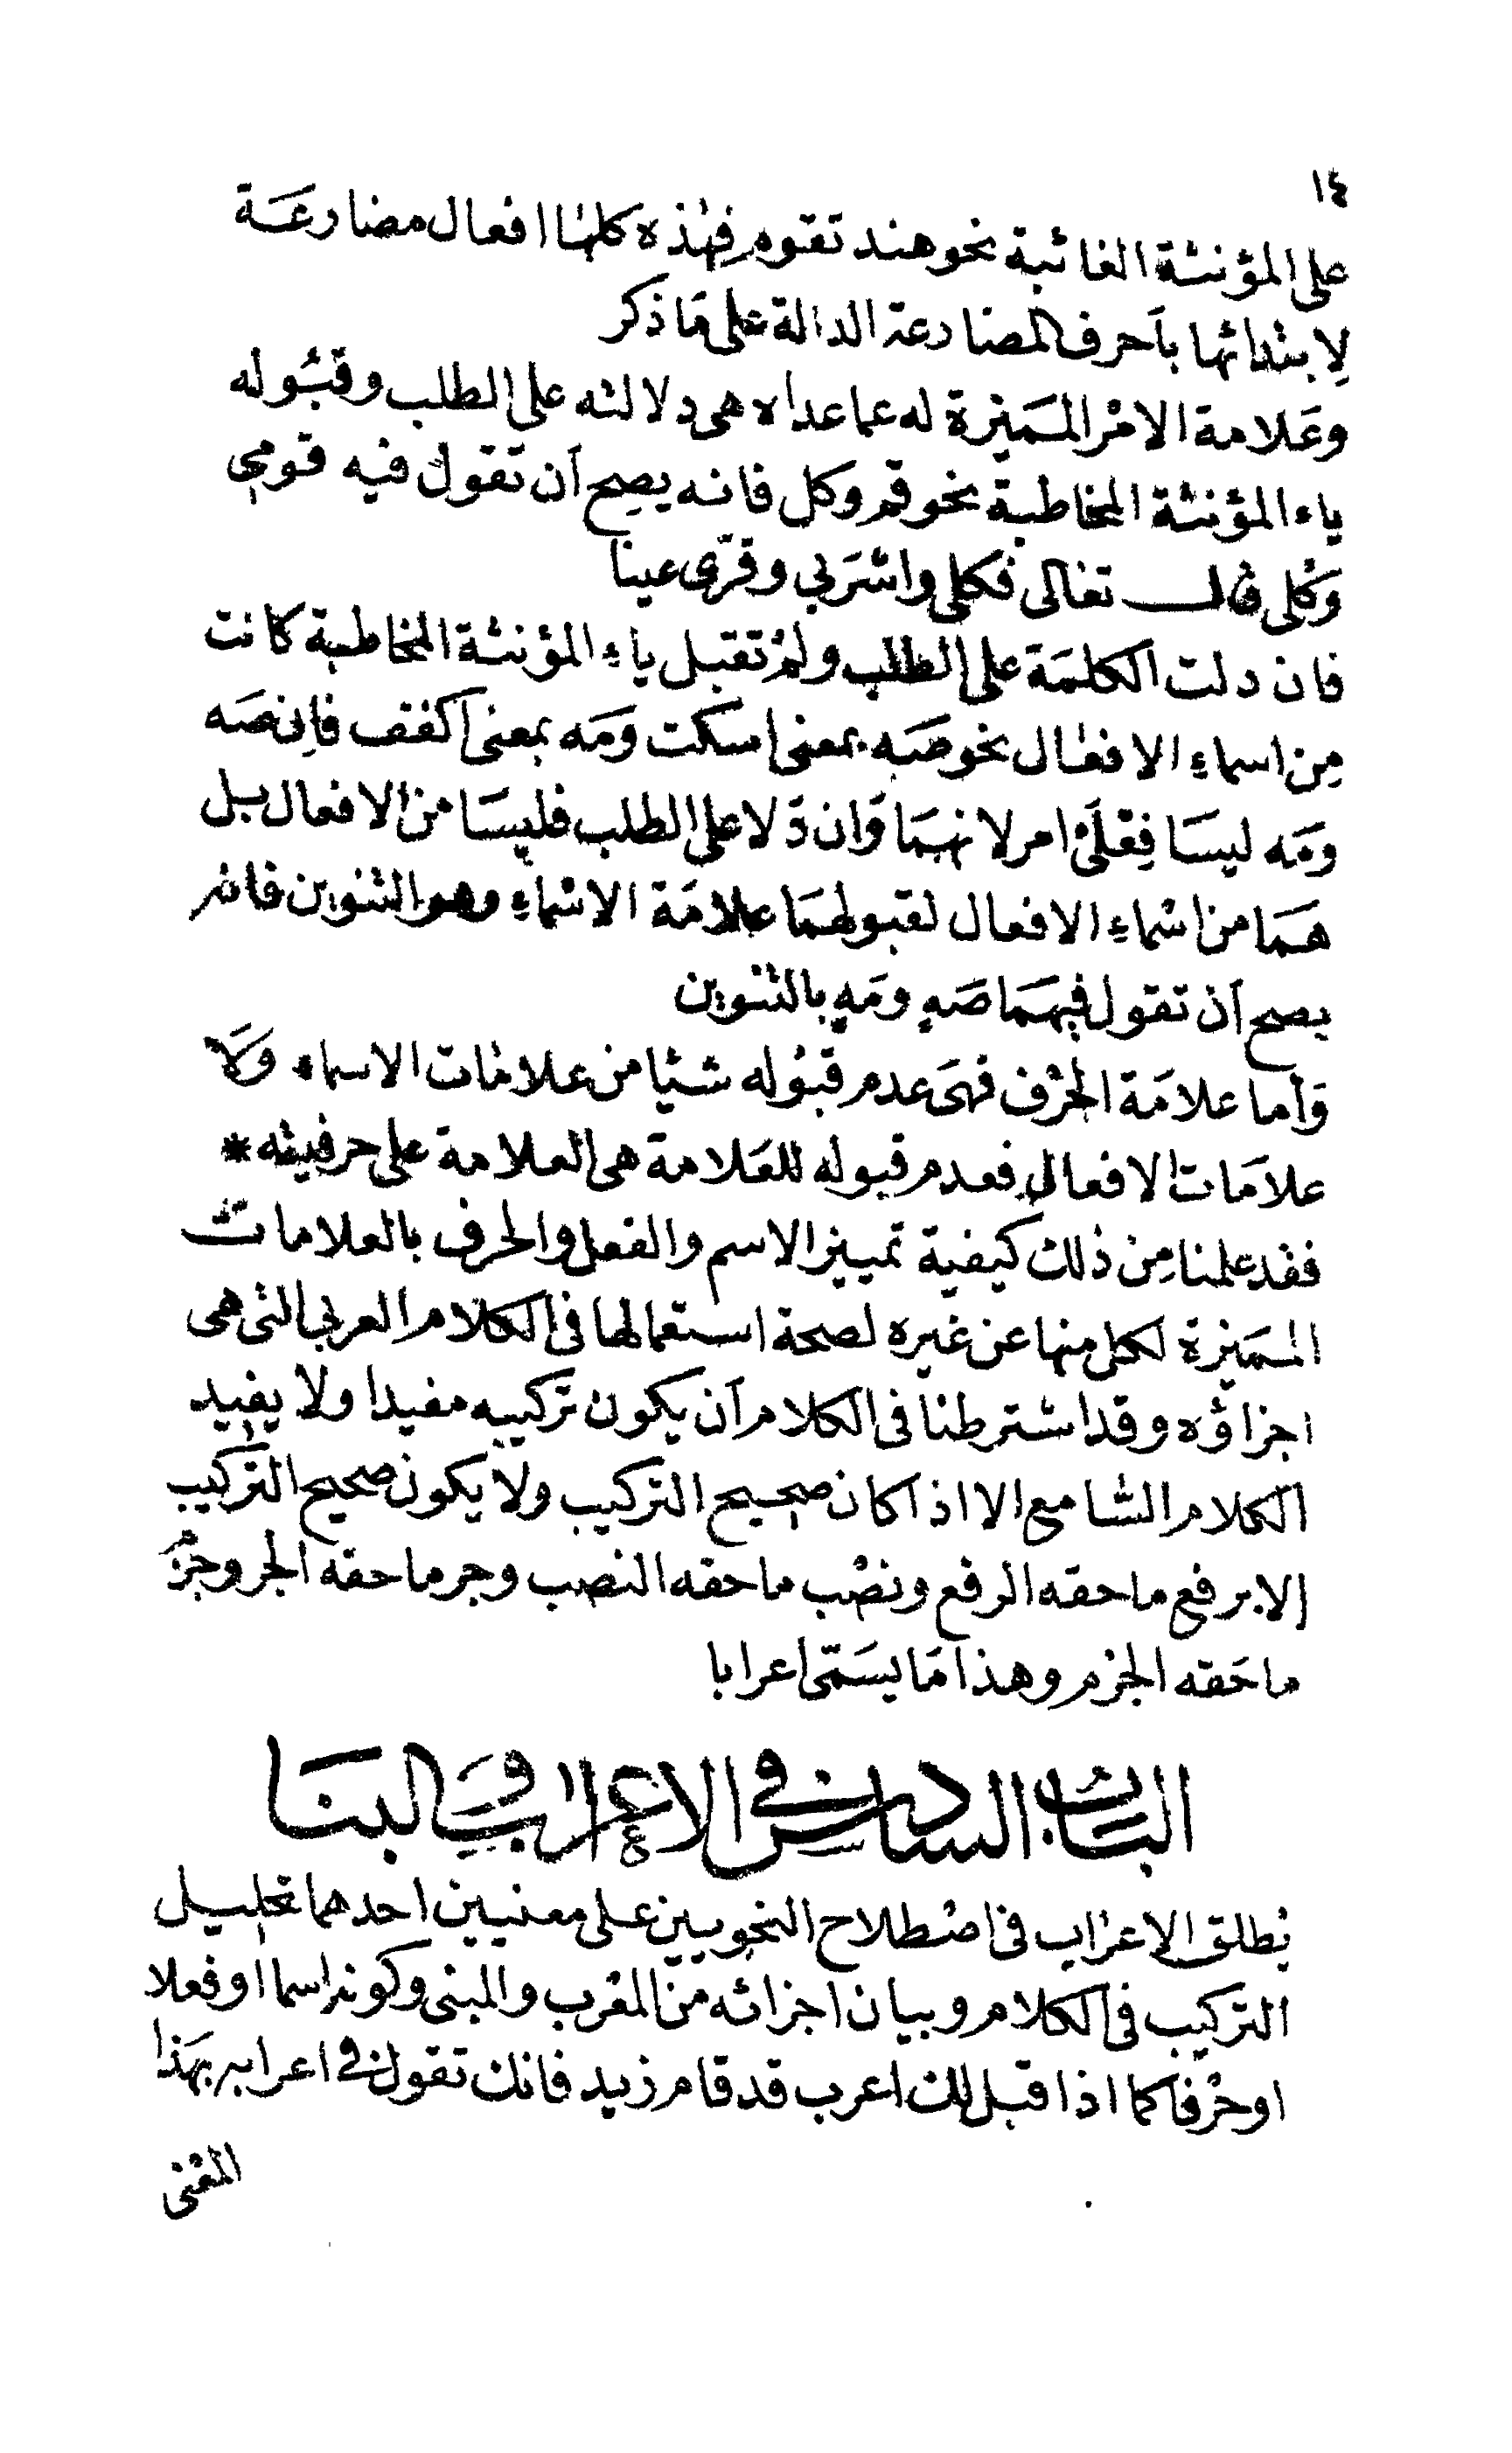 ١٤
على المؤنثة الغائبة نحو هند تقوم فهذه كلها افعال مضارعة
لابتدائها بأحرف المضارعة الدالة على ما ذكر
وعلامة الامر المميزة له عما عداه هى دلالته على الطلب وقبوله
ياء المؤنثة المخاطبة نحو قم وكل فانه يصح أن تقول فيه قومي
وكلى قال تعالى فكلى واشربي وقرّى عينا
فان دلت الكلمة على الطلب ولم تقبل ياء المؤنثة المخاطبة كانت
من اسماء الافعال نحو صه بمعنى اسكت ومه بمعنى اكفف فإن صه
ومه ليسا فعلى امر لانهما وان دلا على الطلب فليسا من الافعال بل
هما من اسماء الافعال لقبولهما علامة الاسماء وهو التنوين فانه
يصح أن تقول فيهما صهٍ ومهٍ بالتنوين
وأما علامة الحرف فهى عدم قبوله شيئا من علامات الاسماء ولا
علامات الافعال فعدم قبوله للعلامة هى العلامة على حرفيته *
فقد علمنا من ذلك كيفية تمييز الاسم والفعل والحرف بالعلامات
المميزة لكل منها عن غيره لصحة استعمالها فى الكلام العربي التى هى
اجزاؤه وقد اشترطنا فى الكلام أن يكون تركيبه مفيدا ولا يفيد
الكلام السامع الا اذا كان صحيح التركيب ولا يكون صحيح التركيب
إلا برفع ما حقه الرفع ونصب ما حقه النصب وجر ما حقه الجر وجزم
ما حقه الجزم وهذا ما يسمّى اعرابا
الباب السادس فى الاعراب والبنا
يطلق الاعراب فى اصطلاح النحويين على معنيين احدهما تحليل
التركيب فى الكلام وبيان اجزائه من المعرب والمبنى وكونه اسما او فعلا
او حرفا كما اذا قيل لك اعرب قد قام زيد فانك تقول فى اعرابه بهذا
المعنى